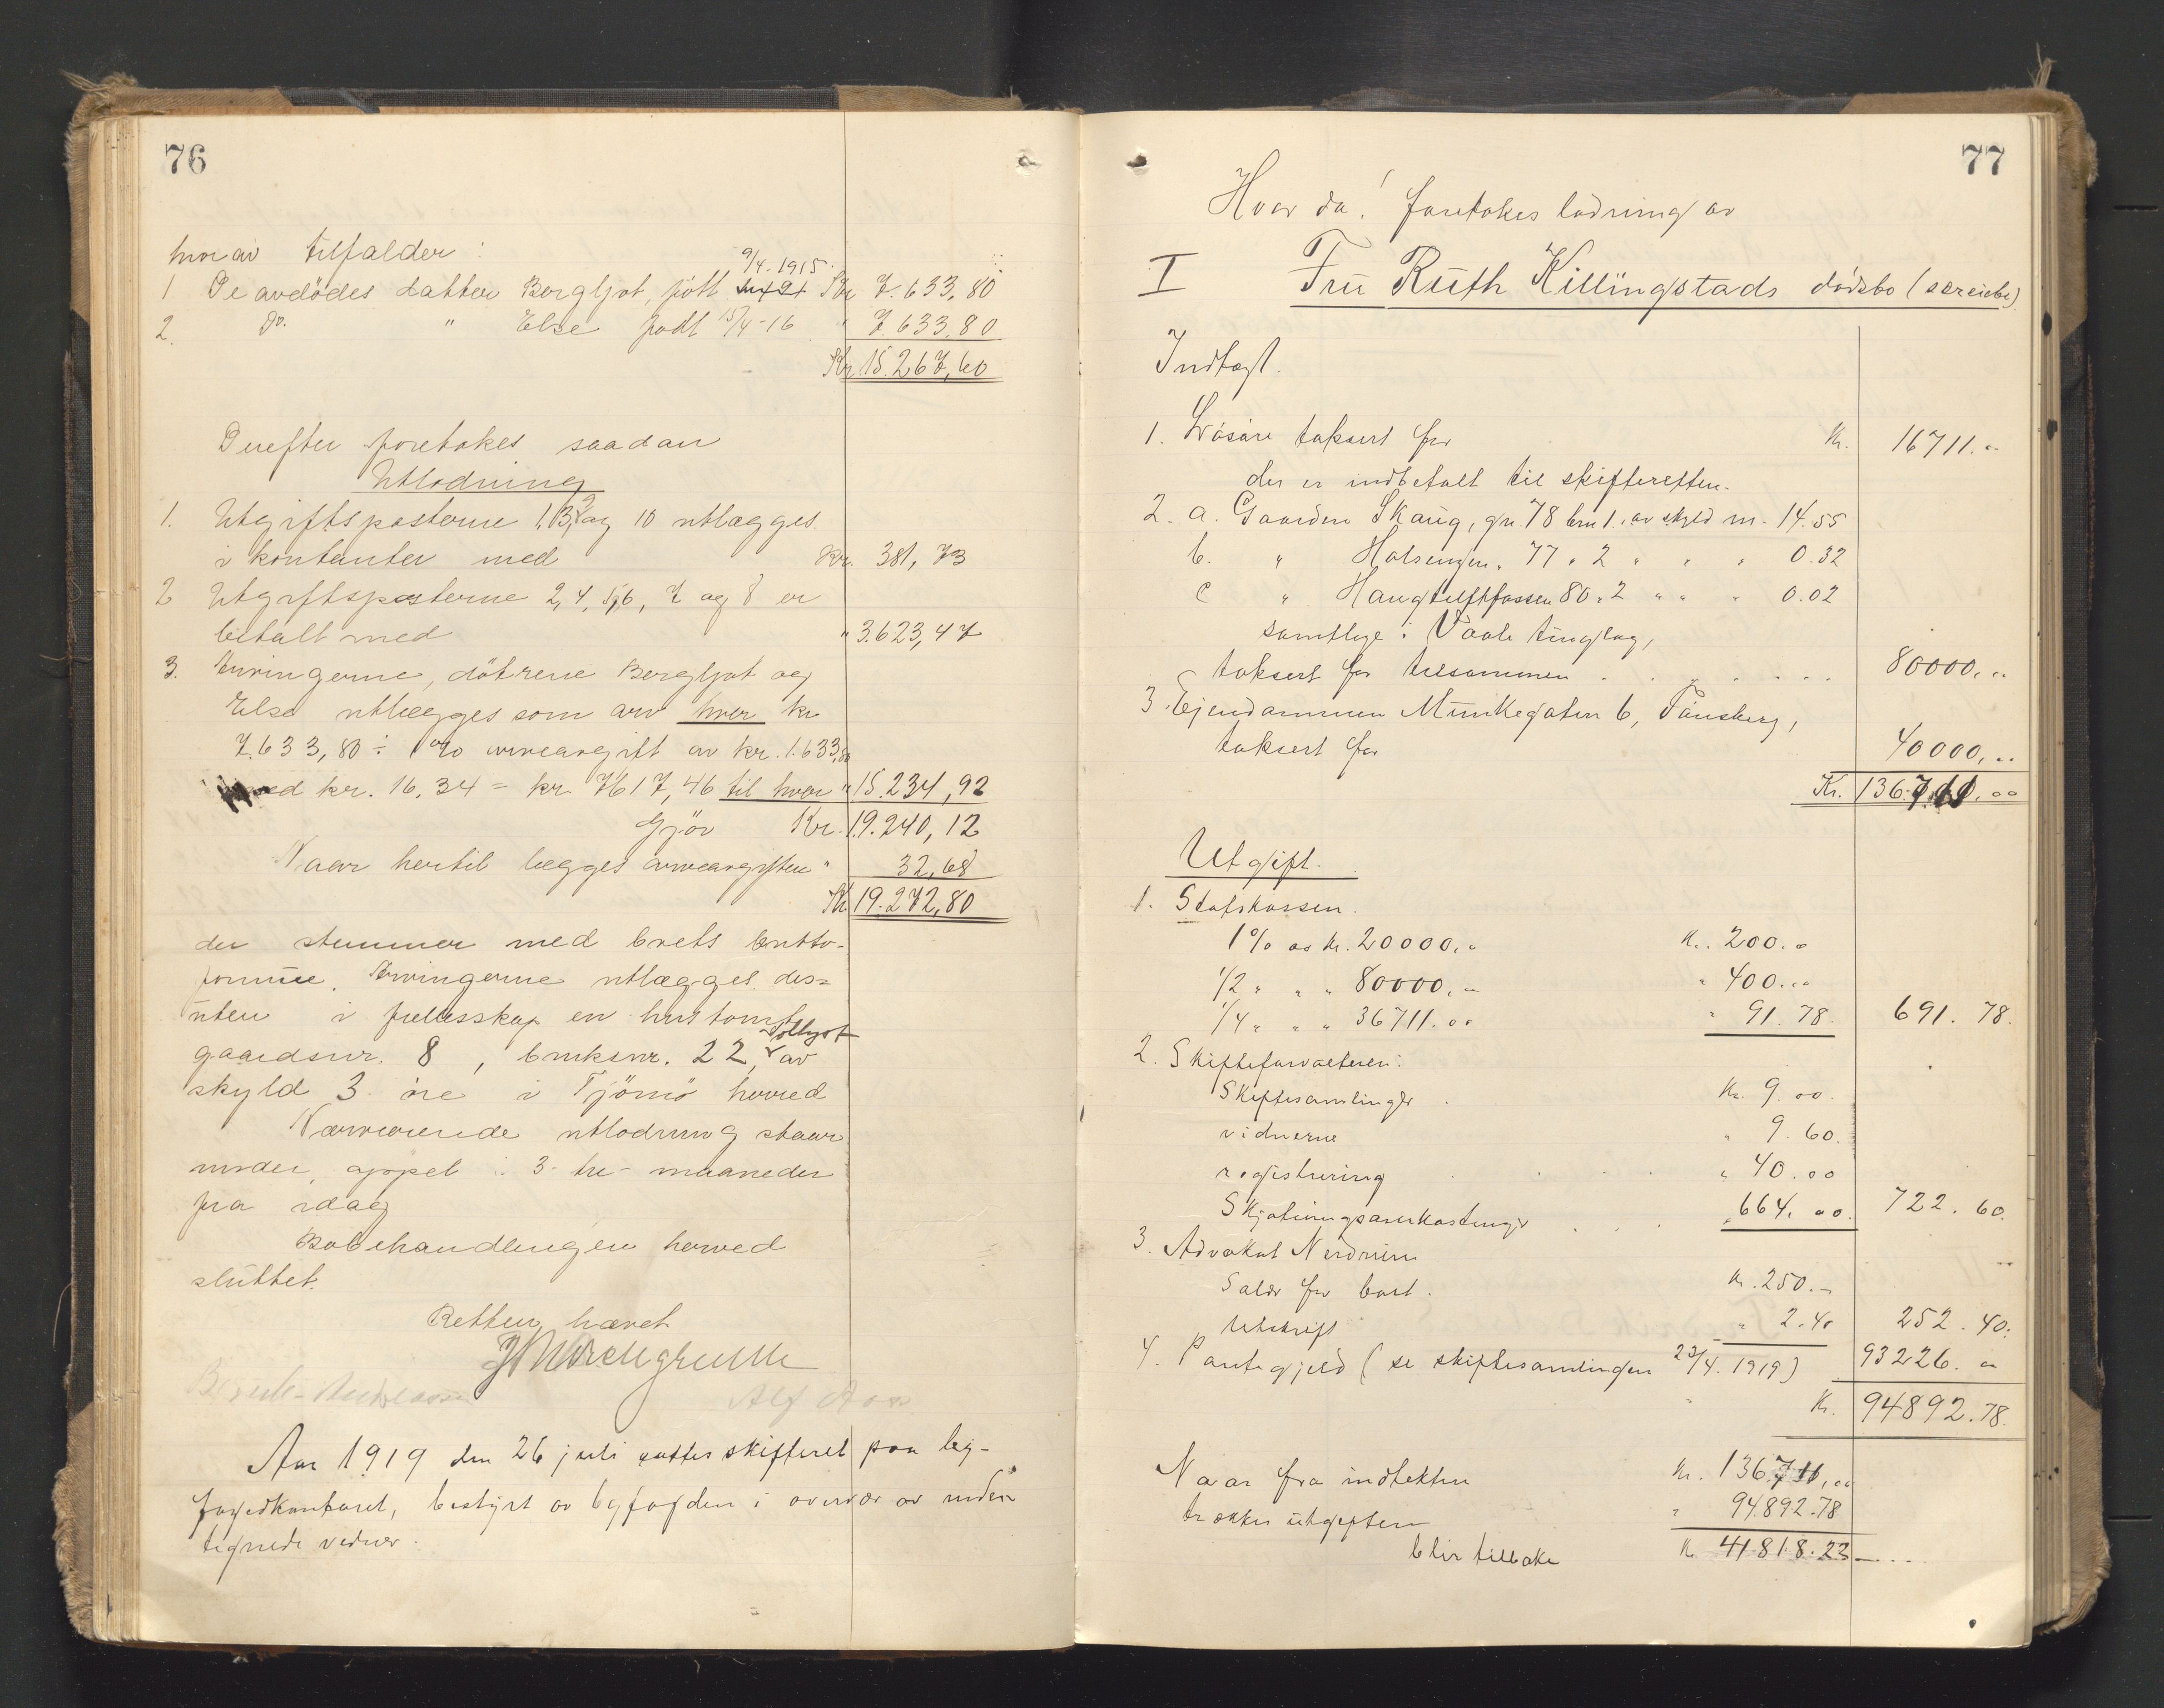 76
hvorav tilfalder:
1 De avdödes datter Bergljot, født 9/4-1915 Kr 7.633,80
2. Do. " Else født 15/4-16 " 7.633,80
Kr 15.267,60
Derefter foretokes saadan
Utlodning
1. Utgiftsposterne 1, 3, 9 og 10 utlægges
i kontanter med Kr. 381,73
2 Utgiftsposterne 2, 4, 5, 6, 7 og 8 er
betalt med " 3.623,47
3. Arvingerne, døtrene Bergljot og
Else utlægges som arv hver kr
7.633,80 ÷ 1% arveavgift av kr. 1.633,80
med kr. 16,34 = kr. 7617,46 til hver " 15.234,92
Gjör Kr. 19.240,12
Naar hertil lægges arveavgiften " 32,68
Kr. 19.272,80
der stemmer med boets brutto-
formue. Arvingerne utlægges des-
uten i fællesskap en hustomt
gaardsnr. 8, bruksnr. 22, Solbyst av
skyld 3 øre i Tjömö herred
Nærværende utlodning staar
under appel i 3 - tre - maaneder
fra idag
Bobehandlingen herved
sluttet.
Retten hævet
Alf Aas
Aar 1919 den 26 juli sattes skifteret paa by-
fogedkontoret, bestyrt av byfogden i overvær av under-
tegnede vidner.
77
Hvor da! foretokes lodning av
I Fru Ruth Killingstads dödsbo (særeiebo)
Indtægt.
1. Lösöre taksert for Kr. 16711.00
der er indbetalt til skifteretten.
2. a. Gaarden Skaug, gn. 78 brn 1. av skyld m. 14.55
b. " Holsengen " 77 " 2 " " " 0.32
c " 80 " 2 " " " 0.02
samtlige i Vaale tinglag,
taksert for tilsammen . . . . . . 80000,00
3. Ejendommen Munkegaten 6, Tönsberg,
taksert for 40000,00
Kr. 136.711.00
Utgift.
1. Statskassen.
1% av kr. 20000,00 Kr. 200.00
1/2 " " " 80000,00 " 400.00
1/4 " " " 36711.00 " 91.78 691.78
2. Skifteforvalteren:
Skiftesamlinger . Kr. 9.00
vidnerne " 9.60.
registrering . . . . " 40.00
Skjøtningsomkostninger . . . " 664.00. 722.60
3. Advokat Nerdrum
Salær for boet. Kr. 250.-
Utskrift " 2.40 252.40.
4. Pantegjeld (se skiftesamlingen 23/4. 1919) 93226.00
Kr. 94892.78.
Naar fra indtekten Kr. 136711,00
trækkes utgiften " 94892.78
blir tilbake Kr. 41818.23